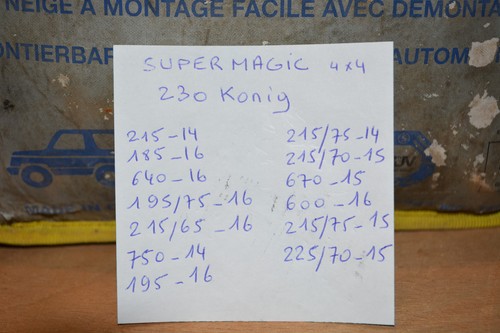 NEIGE A MONTAGE FACILE AVEC DEMONTA
ONTIERBAR
AUTOMOBI
SUPER MAGIC 4x4
230 Konig
215-14
185-16
640-16
195/75-16
215/65-16
750-14
195-16
215/75-14
215/70-15
670-15
600-16
215/75-15
225/70-15